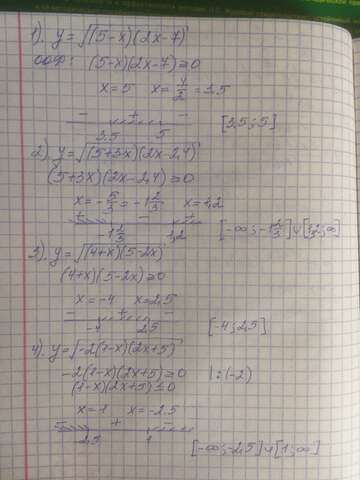 1). y = √(5-x)(2x-7)
ООФ: (5-x)(2x-7) ≥ 0
x = 5 x = 7/2 = 3.5
- + -
3.5 5 [3,5; 5]
2). y = √(5+3x)(2x-2,4)
(5+3x)(2x-2,4) ≥ 0
x = -5/3 = -1 2/3 x = 1,2
+ - +
-1 2/3 1,2 [-∞; -1 2/3] ∪ [1,2; ∞]
3). y = √(4+x)(5-2x)
(4+x)(5-2x) ≥ 0
x = -4 x = 2,5
- + -
-4 2,5 [-4; 2,5]
4). y = √-2(1-x)(2x+5)
-2(1-x)(2x+5) ≥ 0 | : (-2)
(1-x)(2x+5) ≤ 0
x = 1 x = -2.5
- + -
2,5 1
[-∞; -2,5] ∪ [1; ∞]